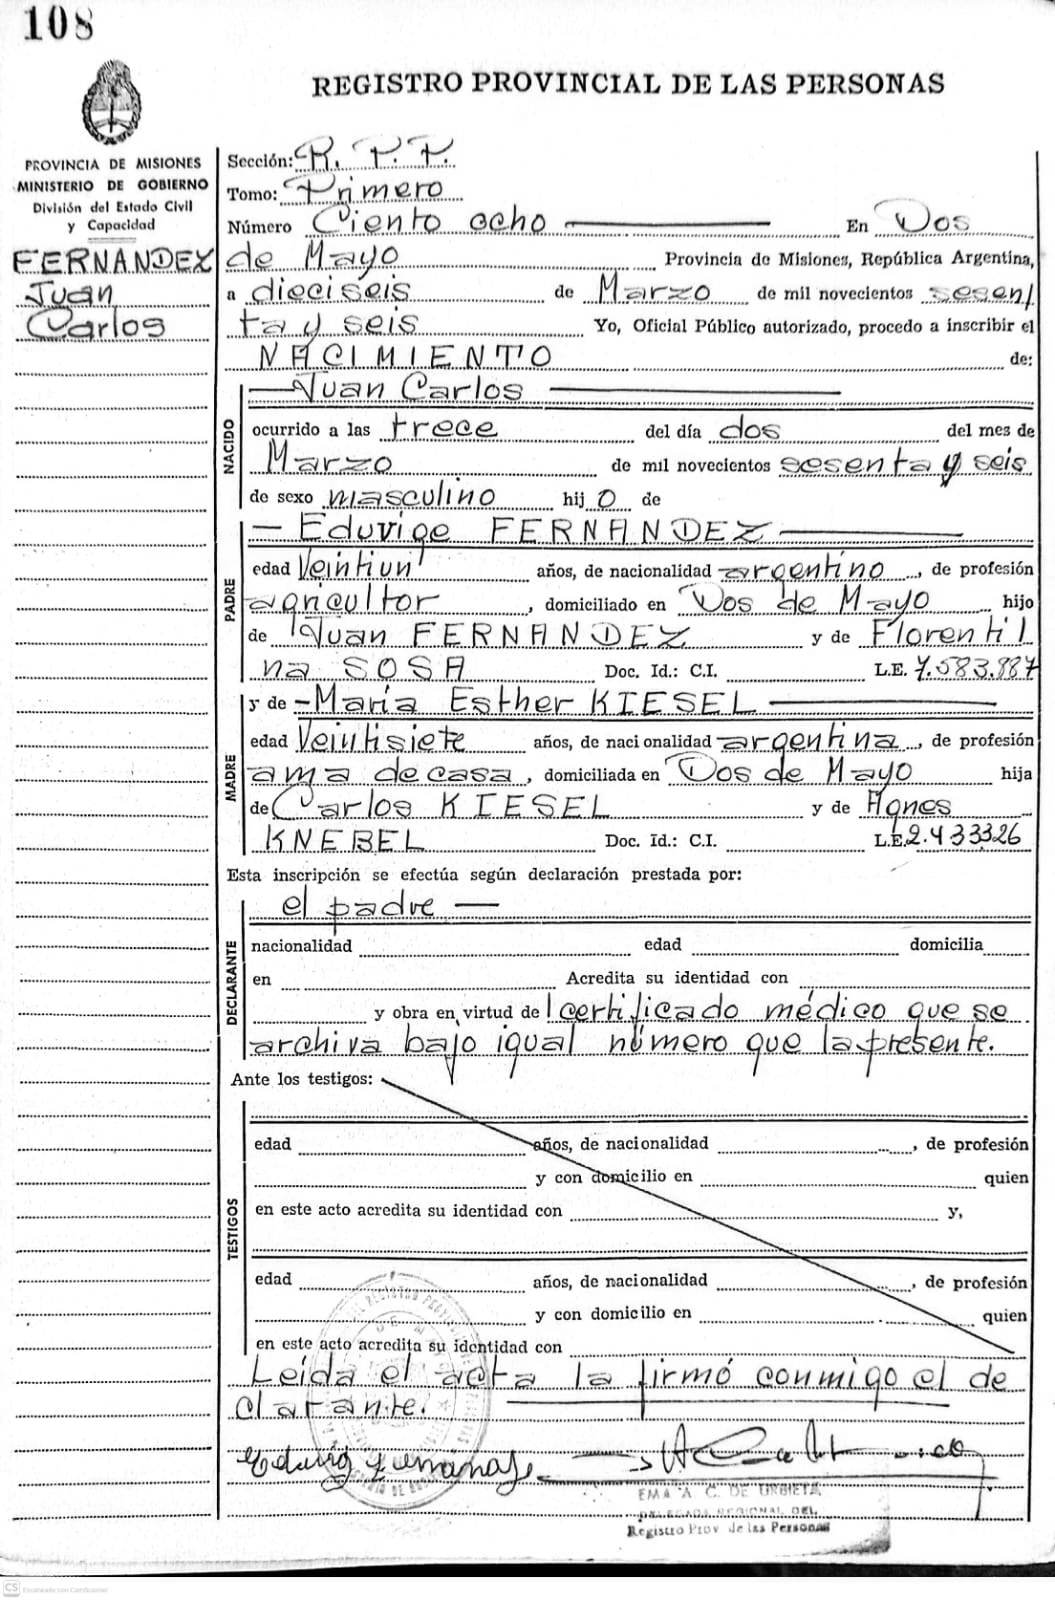 108
REGISTRO PROVINCIAL DE LAS PERSONAS
PROVINCIA DE MISIONES
MINISTERIO DE GOBIERNO
División del Estado Civil
y Capacidad
FERNANDEZ
Juan
Carlos
Sección: R. P. P.
Tomo: Primero
Número Ciento ocho En Dos
de Mayo Provincia de Misiones, República Argentina,
a dieciseis de Marzo de mil novecientos sesen/
ta y seis Yo, Oficial Público autorizado, procedo a inscribir el
NACIMIENTO de:
NACIDO
Juan Carlos
ocurrido a las trece del día dos del mes de
Marzo de mil novecientos sesenta y seis
de sexo masculino hijo de
PADRE
Eduvige FERNANDEZ
edad Veintiun años, de nacionalidad argentino, de profesión
agricultor, domiciliado en Dos de Mayo hijo
de Juan FERNANDEZ y de Florenti
na SOSA Doc. Id.: C.I. L.E. 7.583.887
MADRE
y de María Esther KIESEL
edad Veintisiete años, de nacionalidad argentina, de profesión
ama de casa, domiciliada en Dos de Mayo hija
de Carlos KIESEL y de Agnes
KNEBEL Doc. Id.: C.I. L.E. 2.433326
Esta inscripción se efectúa según declaración prestada por:
DECLARANTE
el padre
nacionalidad edad domicilia
en Acredita su identidad con
y obra en virtud del certificado médico que se
archiva bajo igual número que la presente.
Ante los testigos:
TESTIGOS
edad años, de nacionalidad , de profesión
y con domicilio en quien
en este acto acredita su identidad con y,
edad años, de nacionalidad , de profesión
y con domicilio en quien
en este acto acredita su identidad con
Leída el acta la firmó conmigo el de
clarante.
EMA A. C. DE URBIETA
DELEGADA REGIONAL DEL
Registro Prov de las Personas
CS Escaneado con CamScanner